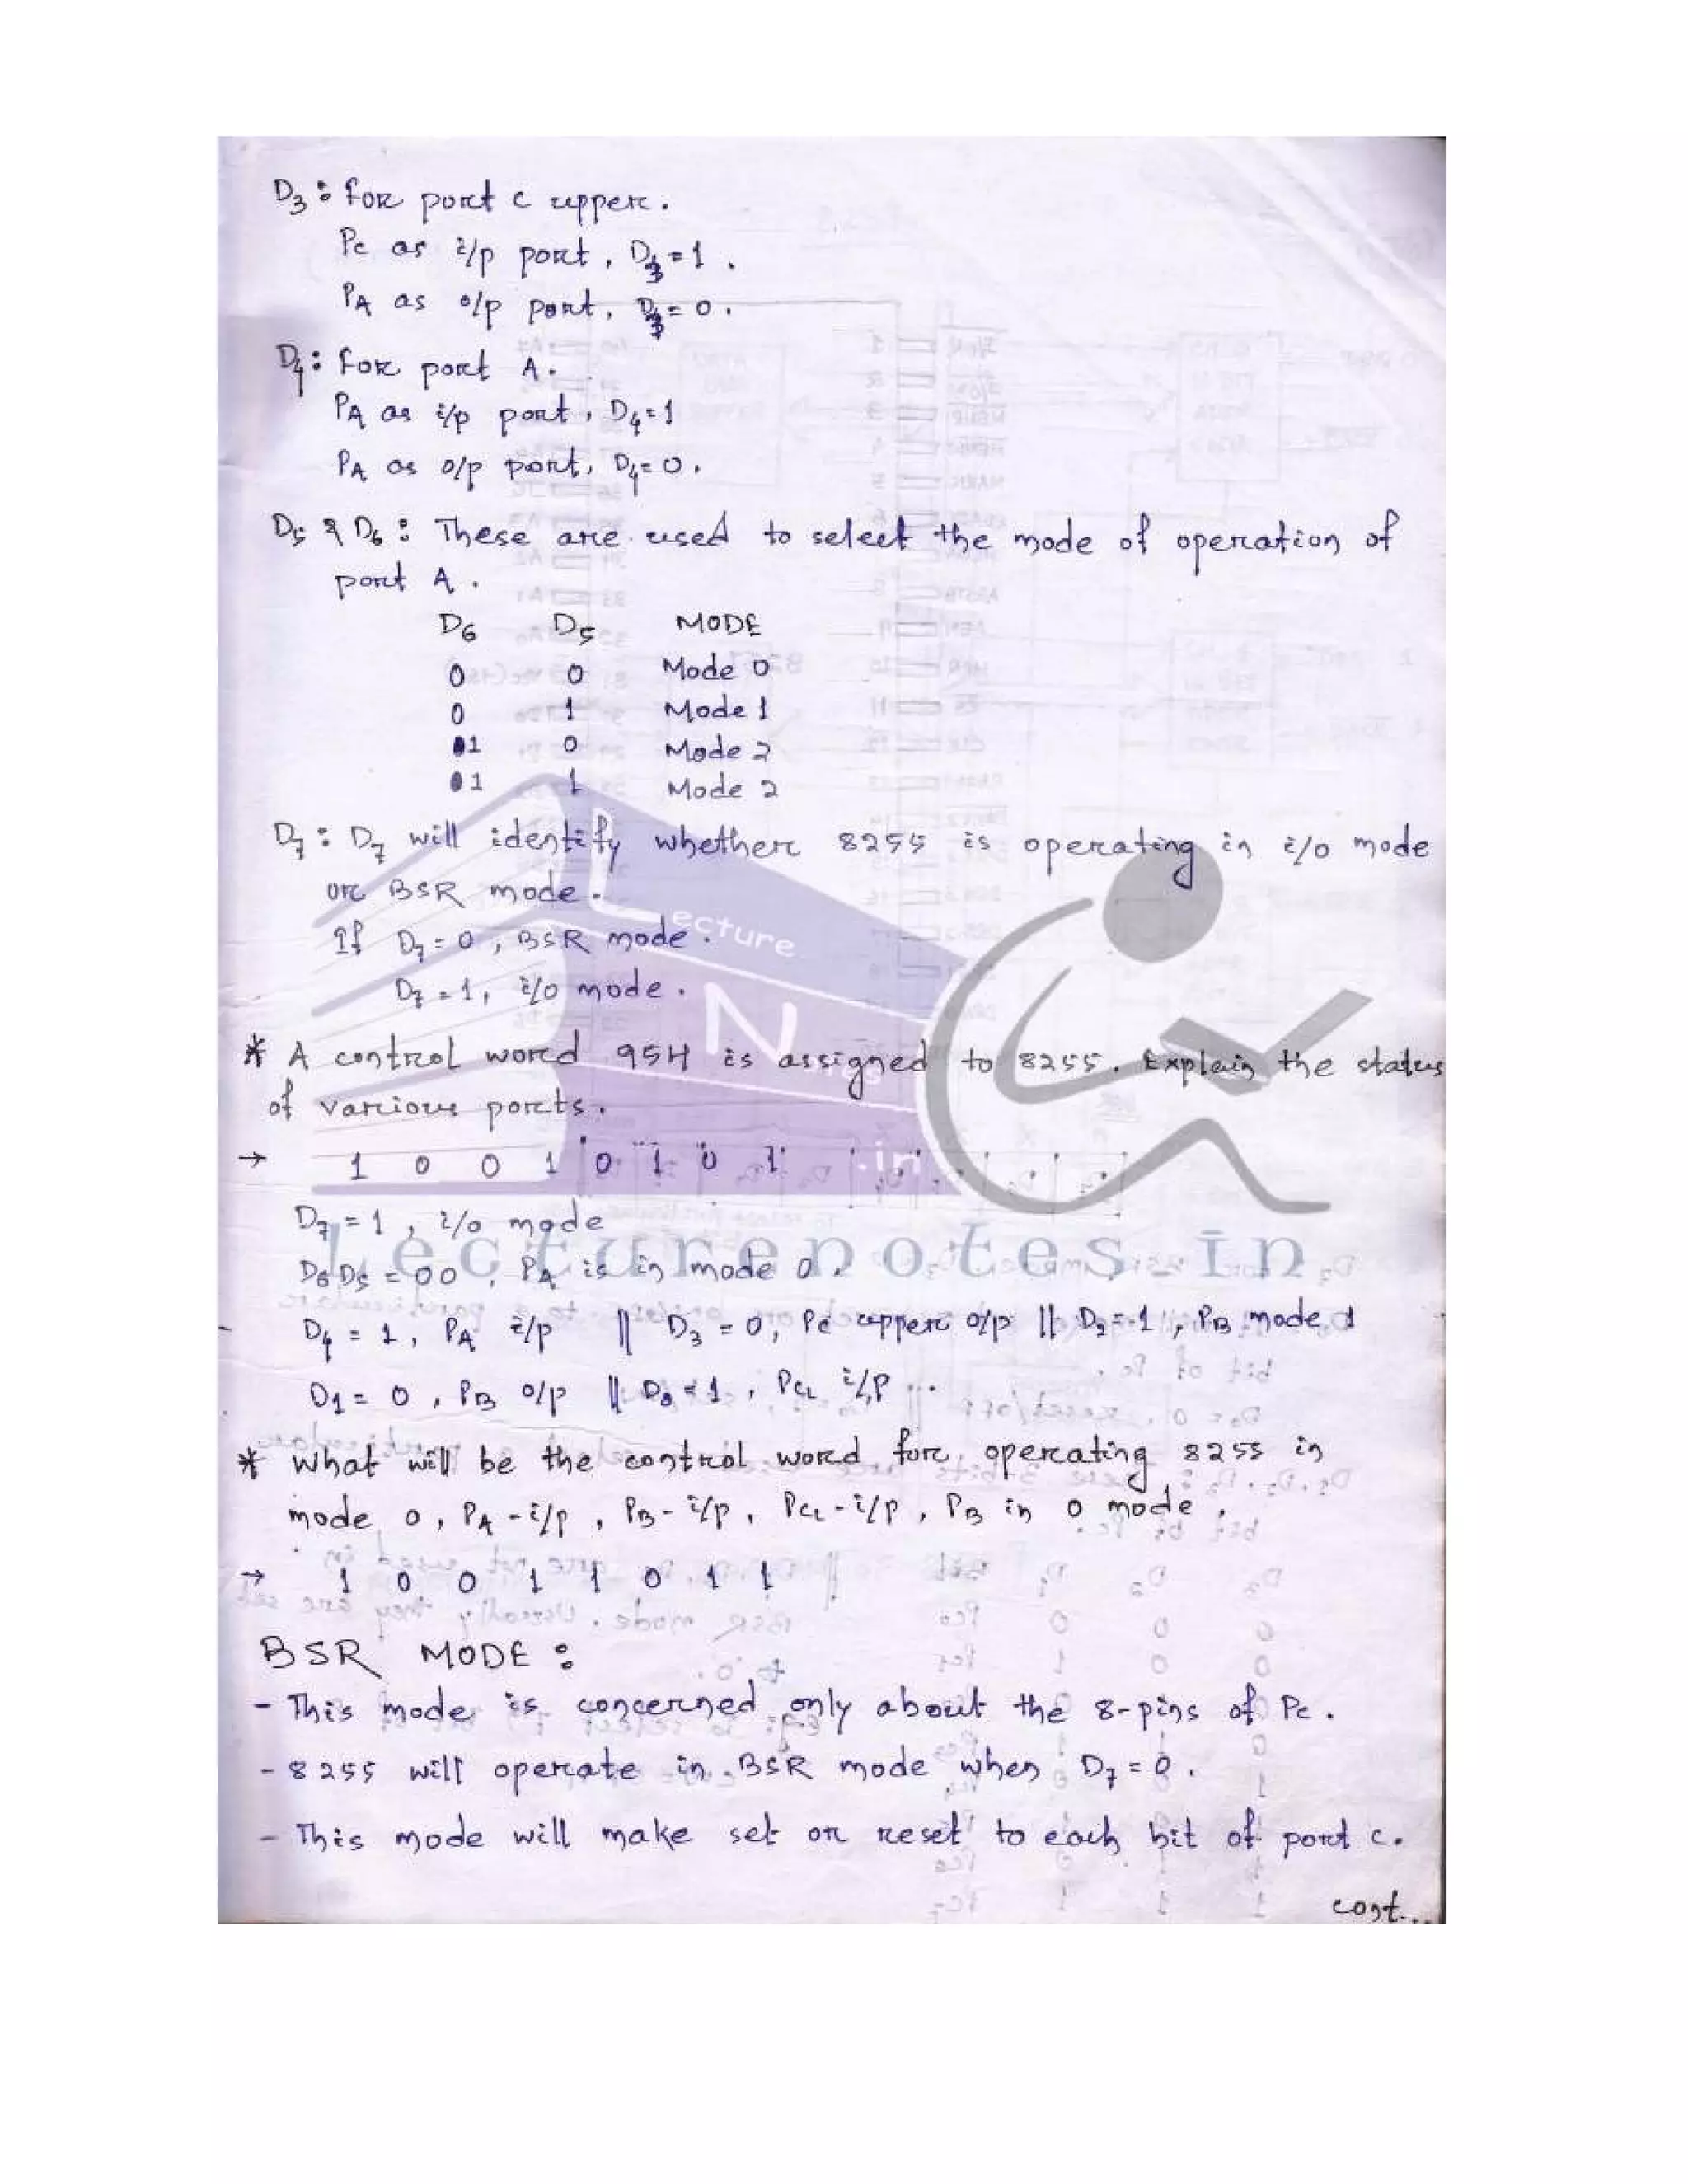 D3 : for port c upper.
Pc as i/p port, D3 = 1.
PA as o/p port, D3 = 0.
D4 : for port A.
PA as i/p port, D4 = 1
PA as o/p port, D4 = 0.
D5 & D6 : These are used to select the mode of operation of
port A.
D6 D5 MODE
0 0 Mode 0
0 1 Mode 1
1 0 Mode 2
1 1 Mode 2
D7 : D7 will identify whether 8255 is operating in i/o mode
or BSR mode.
If D7 = 0, BSR mode.
D7 = 1, i/o mode.
* A control word 95H is assigned to 8255. Explain the status
of various ports.
→ 1 0 0 1 0 1 0 1
D7 = 1, i/o mode
D6 D5 = 00, PA is in mode 0.
D4 = 1, PA i/p || D3 = 0, Pc upper o/p || D2 = 1, PB mode 1
D1 = 0, PB o/p || D0 = 1, PCL i/p.
* What will be the control word for operating 8255 in
mode 0, PA - i/p, PB - i/p, PCL - i/p, PB in 0 mode.
→ 1 0 0 1 1 0 1 1
BSR MODE :
- This mode is concerned only about the 8-pins of Pc.
- 8255 will operate in BSR mode when D7 = 0.
- This mode will make set or reset to each bit of port c.
cont...
Lecture
Notes
.in
Lecturenotes.in